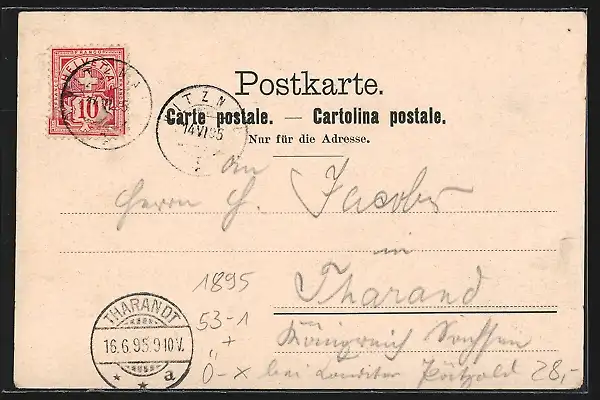 FRANCO
HELVETIA
10
Postkarte.
Carte postale. — Cartolina postale.
Nur für die Adresse.
VITZNAU
14 VI 95
An
Herrn H. Jacobs
in
Tharand
Königreich Sachsen
bei Conditor Pötzold 28,-
1895
53-1
" +
0-x
THARANDT
16.6.95.9-10V.
* * a